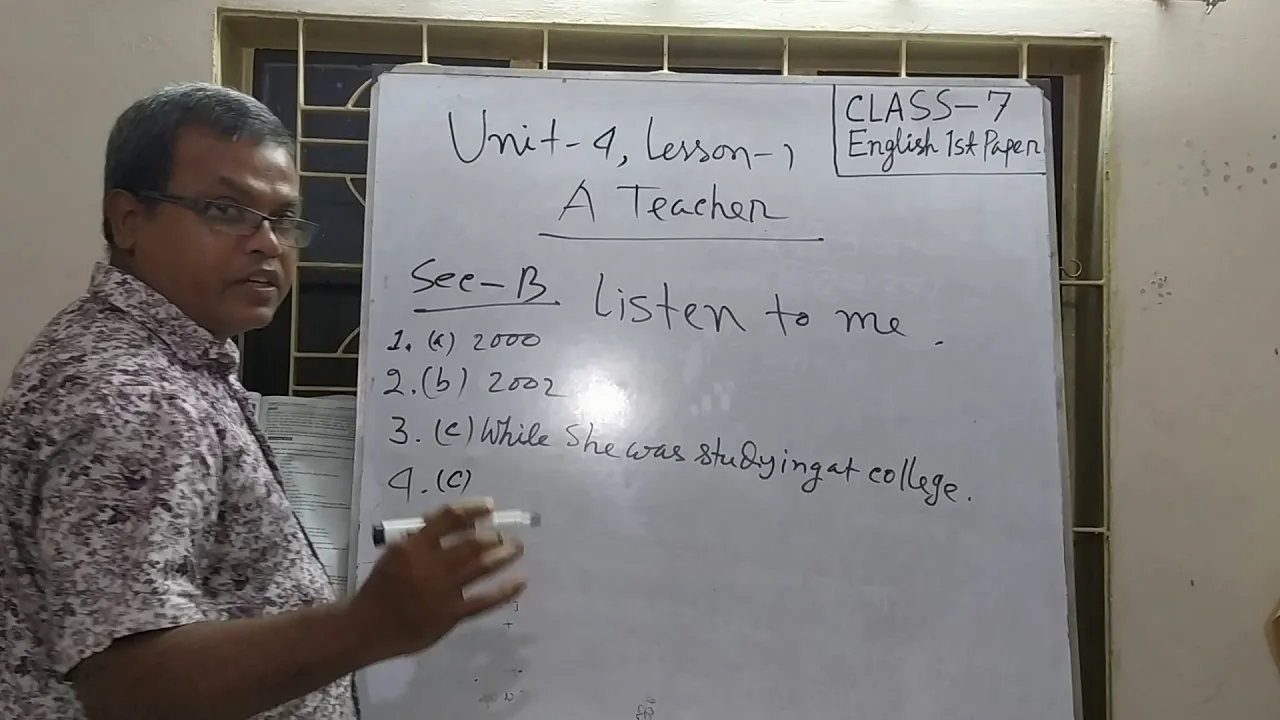 CLASS-7
English 1st Paper
Unit-4, Lesson-1
A Teacher
Sec-B Listen to me.
1. (a) 2000
2. (b) 2002
3. (c) While she was studying at college.
4. (c)